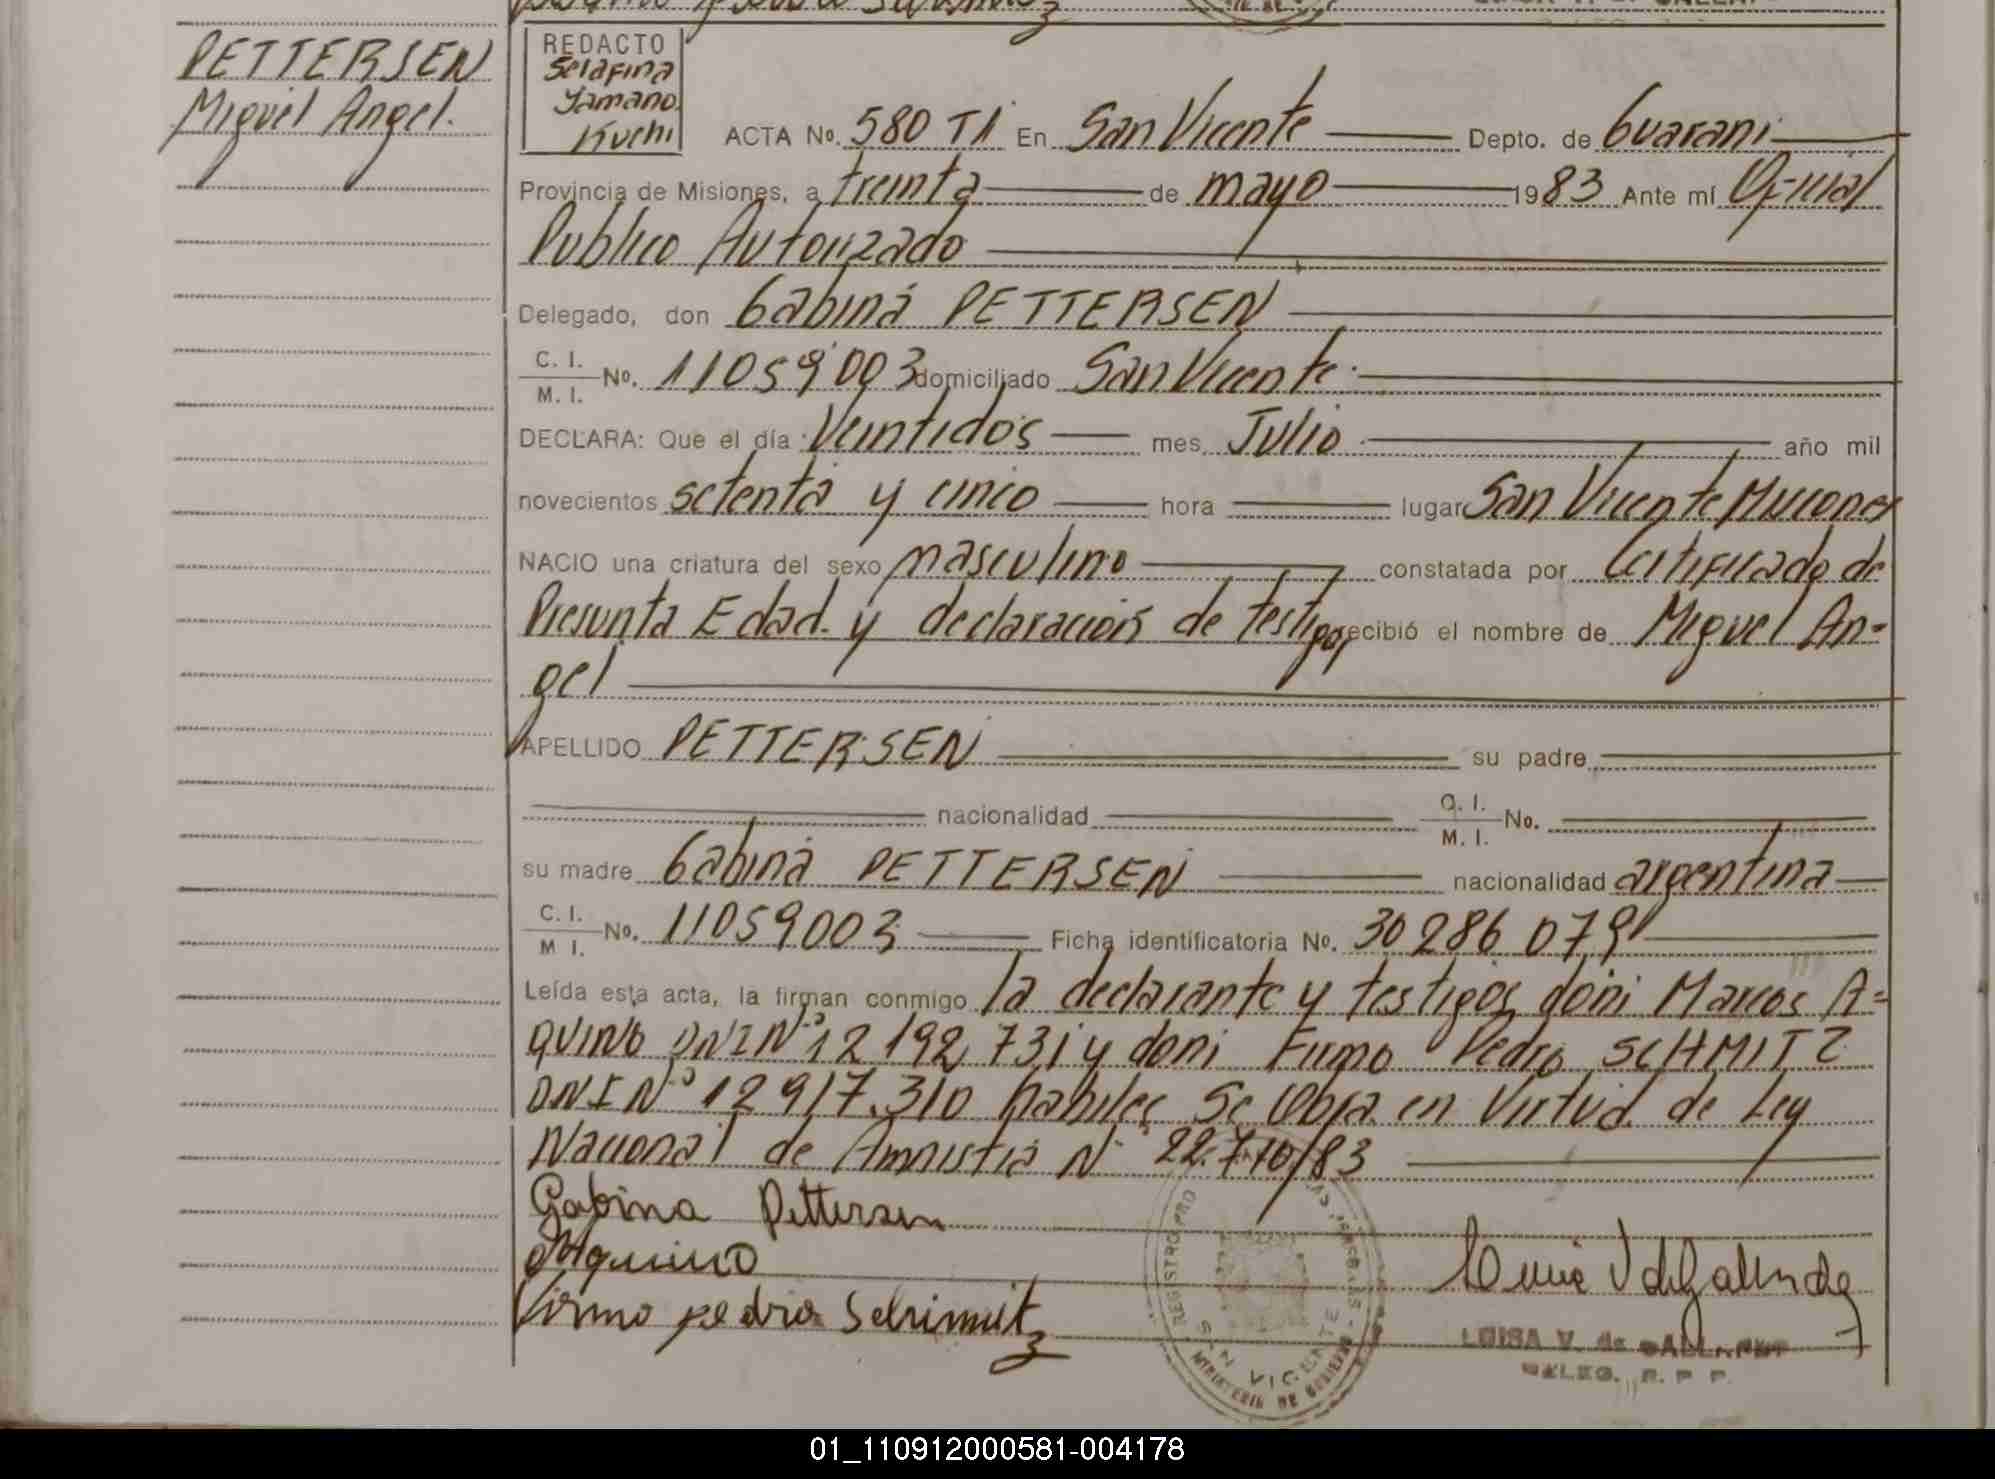 PETTERSEN
Miguel Angel.
REDACTO
Serafina
Yamano
Kuchi
ACTA No. 580 T1 En San Vicente Depto. de Guarani
Provincia de Misiones, a treinta de mayo 1983 Ante mí Oficial
Publico Autorizado
Delegado, don Gabina PETTERSEN
C. I.
M. I. No. 11059003 domiciliado San Vicente.
DECLARA: Que el día Veintidos mes Julio año mil
novecientos setenta y cinco hora lugar San Vicente Misiones
NACIO una criatura del sexo masculino constatada por Certificado de
Presunta Edad y declaracion de testigos recibió el nombre de Miguel An-
gel
APELLIDO PETTERSEN su padre
nacionalidad C. I.
M. I. No.
su madre Gabina PETTERSEN nacionalidad argentina
C. I.
M I. No. 11059003 Ficha identificatoria No. 30286079
Leída esta acta, la firman conmigo la declarante y testigos don: Marcos A=
QUINO DNI Nº 12 192 731 y don: Firmo Pedro SCHMITZ
DNI Nº 12917.310 habiles Se Obra en Virtud de Ley
Nacional de Amnistia Nº 22.710/83
Gabina Pettersen
Aquino
Firmo pedro Schimitz
REGISTRO PRO LAS PERSONAS
SAN VICENTE
MINISTERIO DE GOBIERNO
LUISA V. de GALLARDO
DELEG. R. P. P.
01_110912000581-004178